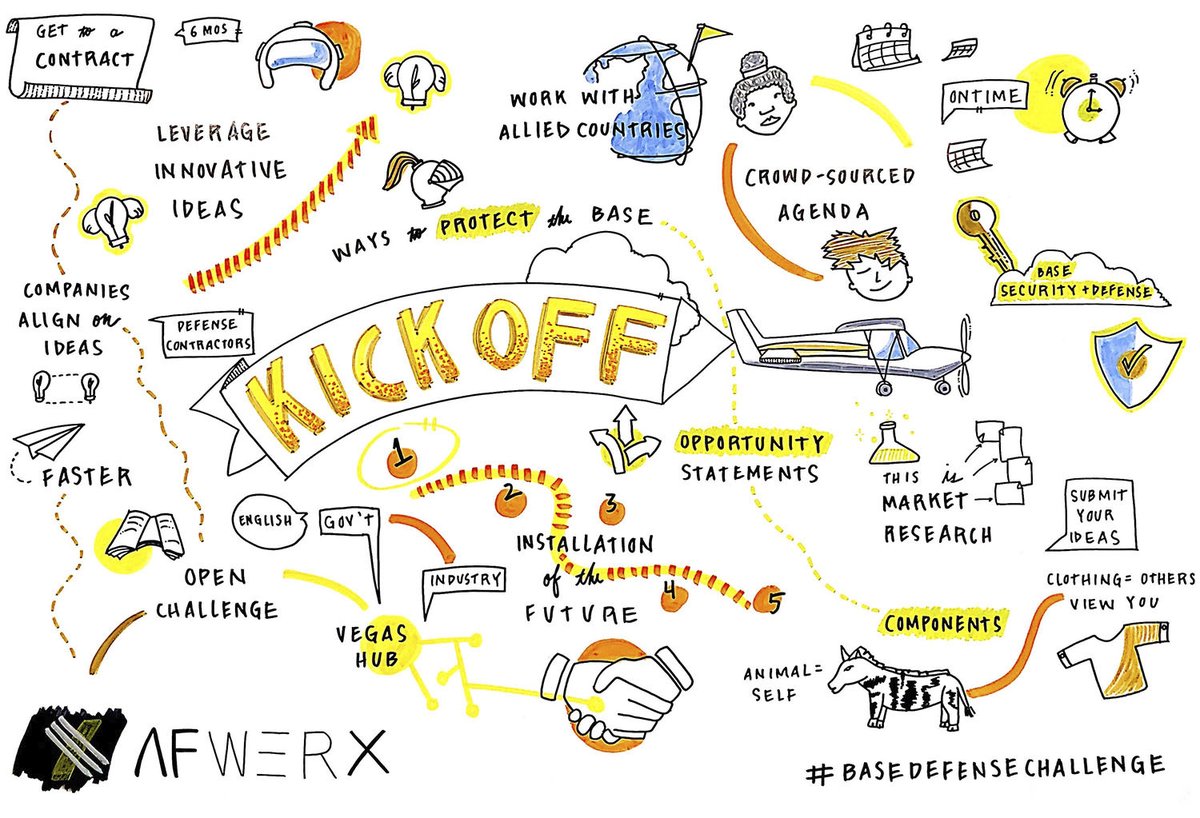 GET to a
CONTRACT
6 MOS
LEVERAGE
INNOVATIVE
IDEAS
WORK WITH
ALLIED COUNTRIES
ON TIME
CROWD-SOURCED
AGENDA
WAYS to PROTECT the BASE
BASE
SECURITY + DEFENSE
COMPANIES
ALIGN on
IDEAS
DEFENSE
CONTRACTORS
KICK OFF
FASTER
1
2
3
4
5
OPPORTUNITY
STATEMENTS
THIS is
MARKET
RESEARCH
SUBMIT
YOUR
IDEAS
ENGLISH
GOV'T
INDUSTRY
INSTALLATION
of the
FUTURE
OPEN
CHALLENGE
VEGAS
HUB
CLOTHING = OTHERS
VIEW YOU
COMPONENTS
ANIMAL =
SELF
AFWERX
#BASEDEFENSECHALLENGE